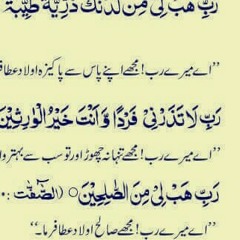 رَبِّ هَبْ لِیْ مِنْ لَّدُنْكَ ذُرِّیَّةً طَیِّبَةً
’’اے میرے رب! مجھے اپنے پاس سے پاکیزہ اولاد عطا فر
رَبِّ لَا تَذَرْنِیْ فَرْدًا وَّ اَنْتَ خَیْرُ الْوٰرِثِیْنَ
’’اے میرے رب! مجھے تنہا نہ چھوڑ اور تو سب سے بہتر وا
رَبِّ هَبْ لِیْ مِنَ الصّٰلِحِیْنَ○ (الصّٰفّٰت :
’’اے میرے رب! مجھے صالح اولاد عطا فرما۔‘‘